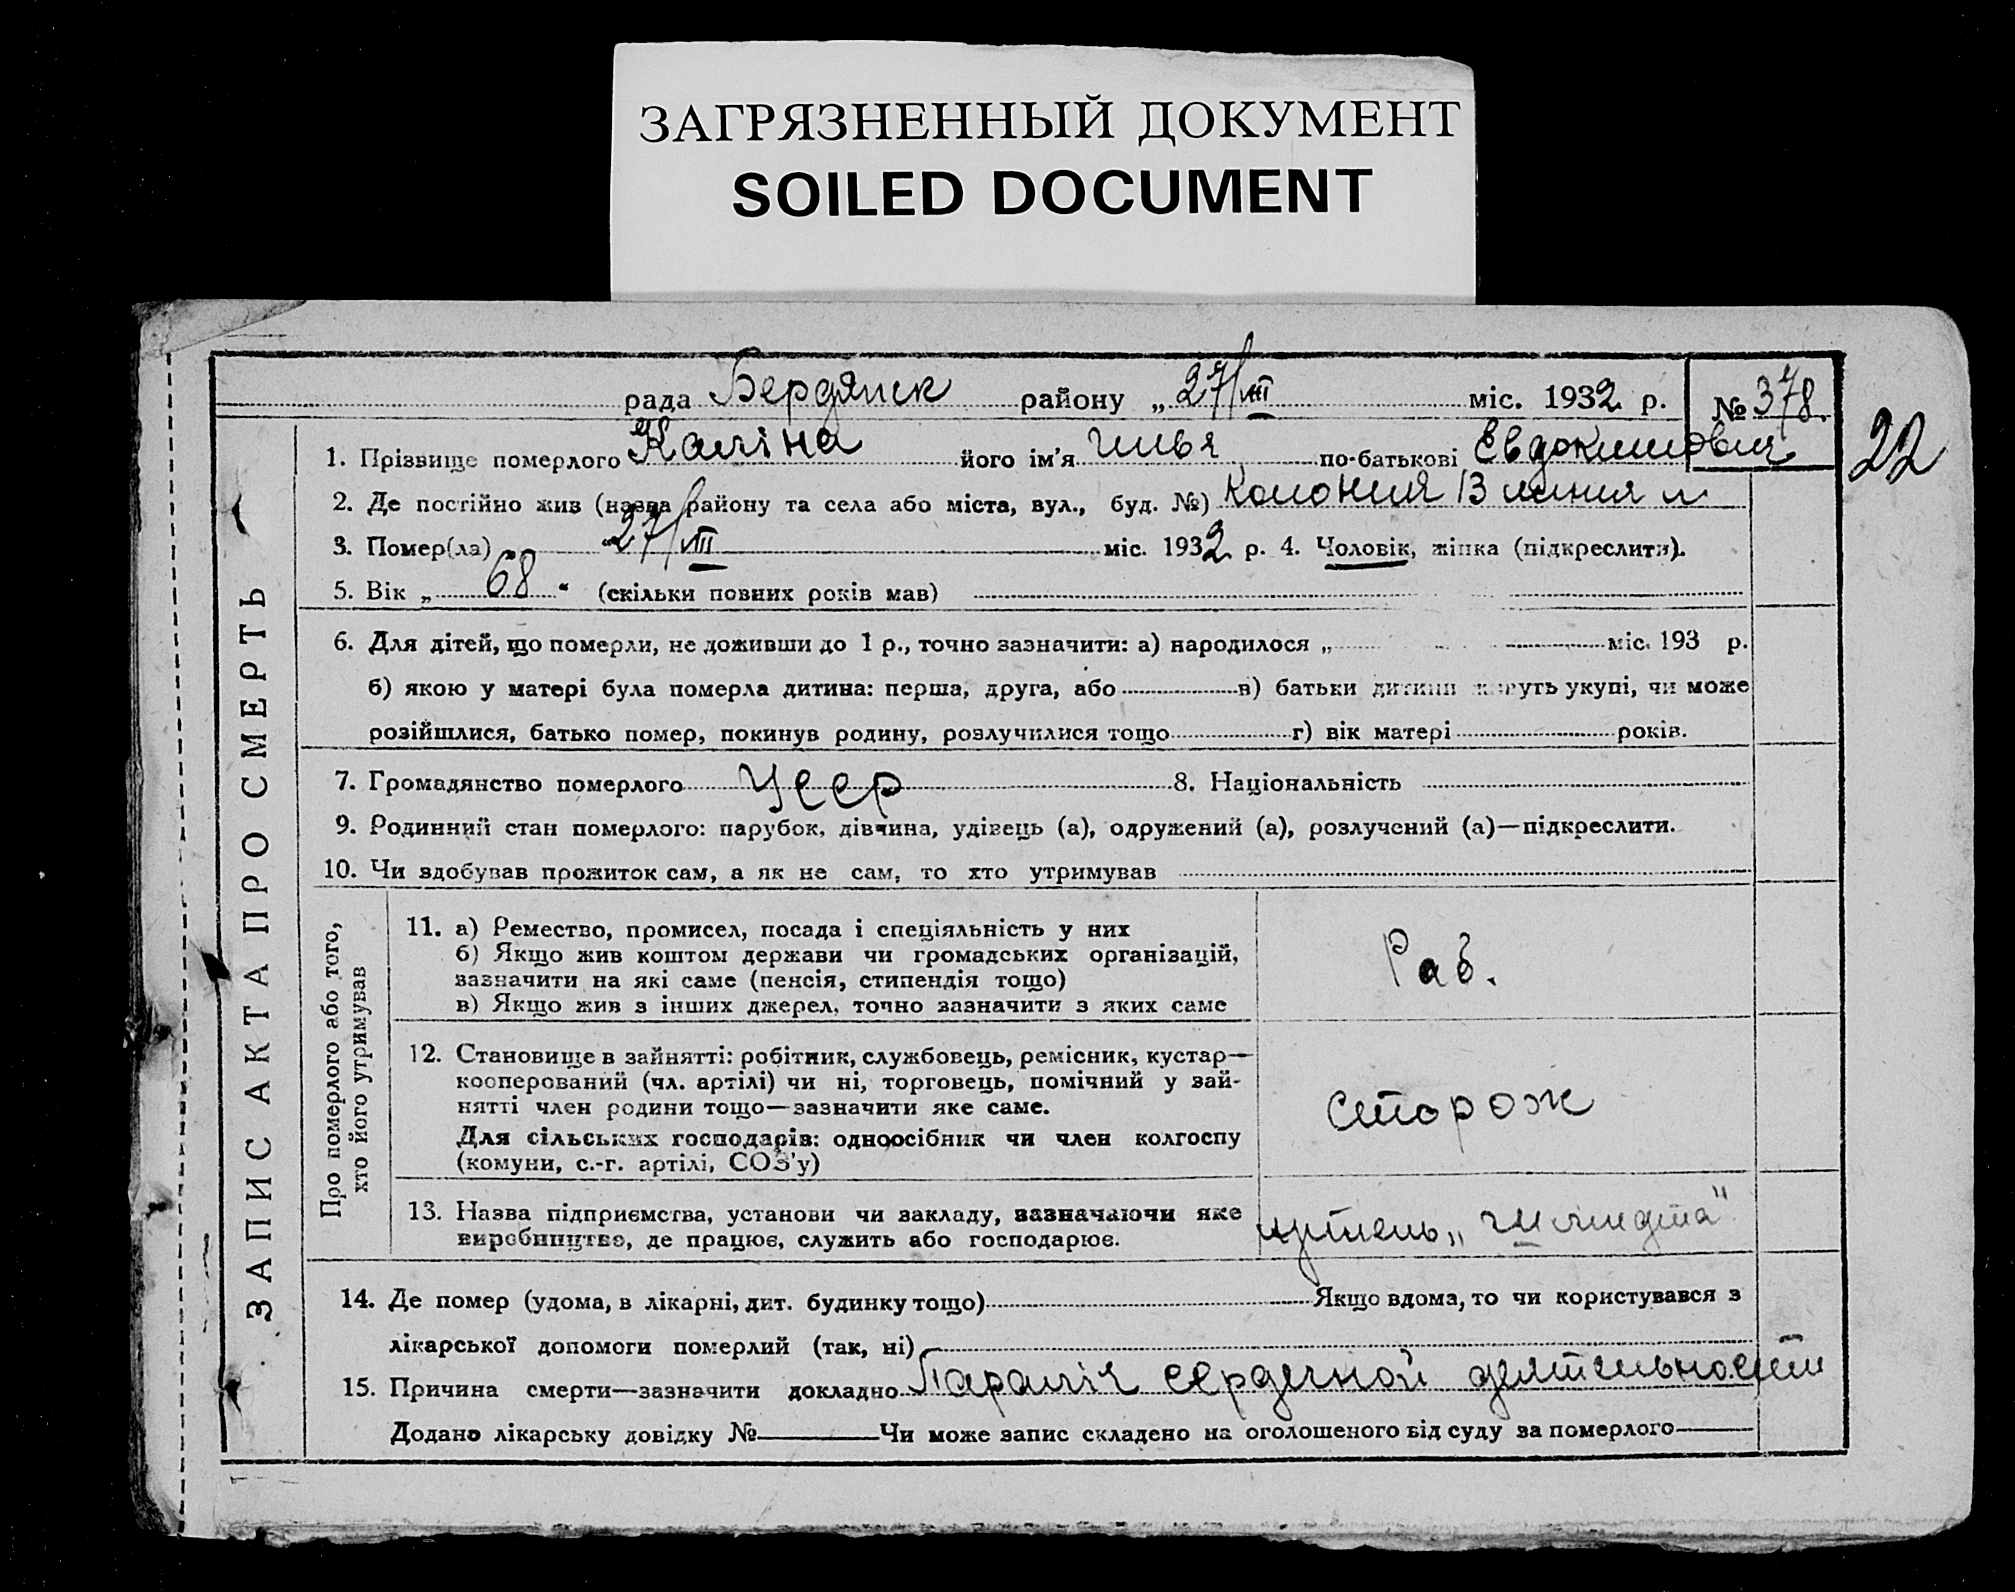 ЗАГРЯЗНЕННЫЙ ДОКУМЕНТ
SOILED DOCUMENT
рада Бердянск району „ 27/VIII міс. 1932 р. № 378.
22
1. Прізвище померлого Каліна його ім'я Илья по-батькові Евдокимович
2. Де постійно жив (назва району та села або міста, вул., буд. №) Колония 13 линия
3. Помер(ла) „27/VIII міс. 1932 р. 4. Чоловік, жінка (підкреслити).
5. Вік „ 68 “ (скільки повних років мав)
6. Для дітей, що померли, не доживши до 1 р., точно зазначити: а) народилося „ міс. 193 р.
б) якою у матері була померла дитина: перша, друга, або в) батьки дитини живуть укупі, чи може
розійшлися, батько помер, покинув родину, розлучилися тощо г) вік матері років.
7. Громадянство померлого УССР 8. Національність
9. Родинний стан померлого: парубок, дівчина, удівець (а), одружений (а), розлучений (а)—підкреслити.
10. Чи здобував прожиток сам, а як не сам, то хто утримував
ЗАПИС АКТА ПРО СМЕРТЬ
Про померлого або того,
хто його утримував
11. а) Ремество, промисел, посада і спеціяльність у них
б) Якщо жив коштом держави чи громадських організацій,
зазначити на які саме (пенсія, стипендія тощо)
в) Якщо жив з інших джерел, точно зазначити з яких саме
Раб.
12. Становище в зайнятті: робітник, службовець, ремісник, кустар—
кооперований (чл. артілі) чи ні, торговець, помічний у зай-
нятті член родини тощо—зазначити яке саме.
Для сільських господарів: одноосібник чи член колгоспу
(комуни, с.-г. артілі, СОЗ'у)
Сторож
13. Назва підприємства, установи чи закладу, зазначаючи яке
виробництво, де працює, служить або господарює.
артель „
14. Де помер (удома, в лікарні, дит. будинку тощо) Якщо вдома, то чи користувався з
лікарської допомоги померлий (так, ні)
15. Причина смерти—зазначити докладно Параліч сердечной деятельности
Додано лікарську довідку № Чи може запис складено на оголошеного від суду за померлого